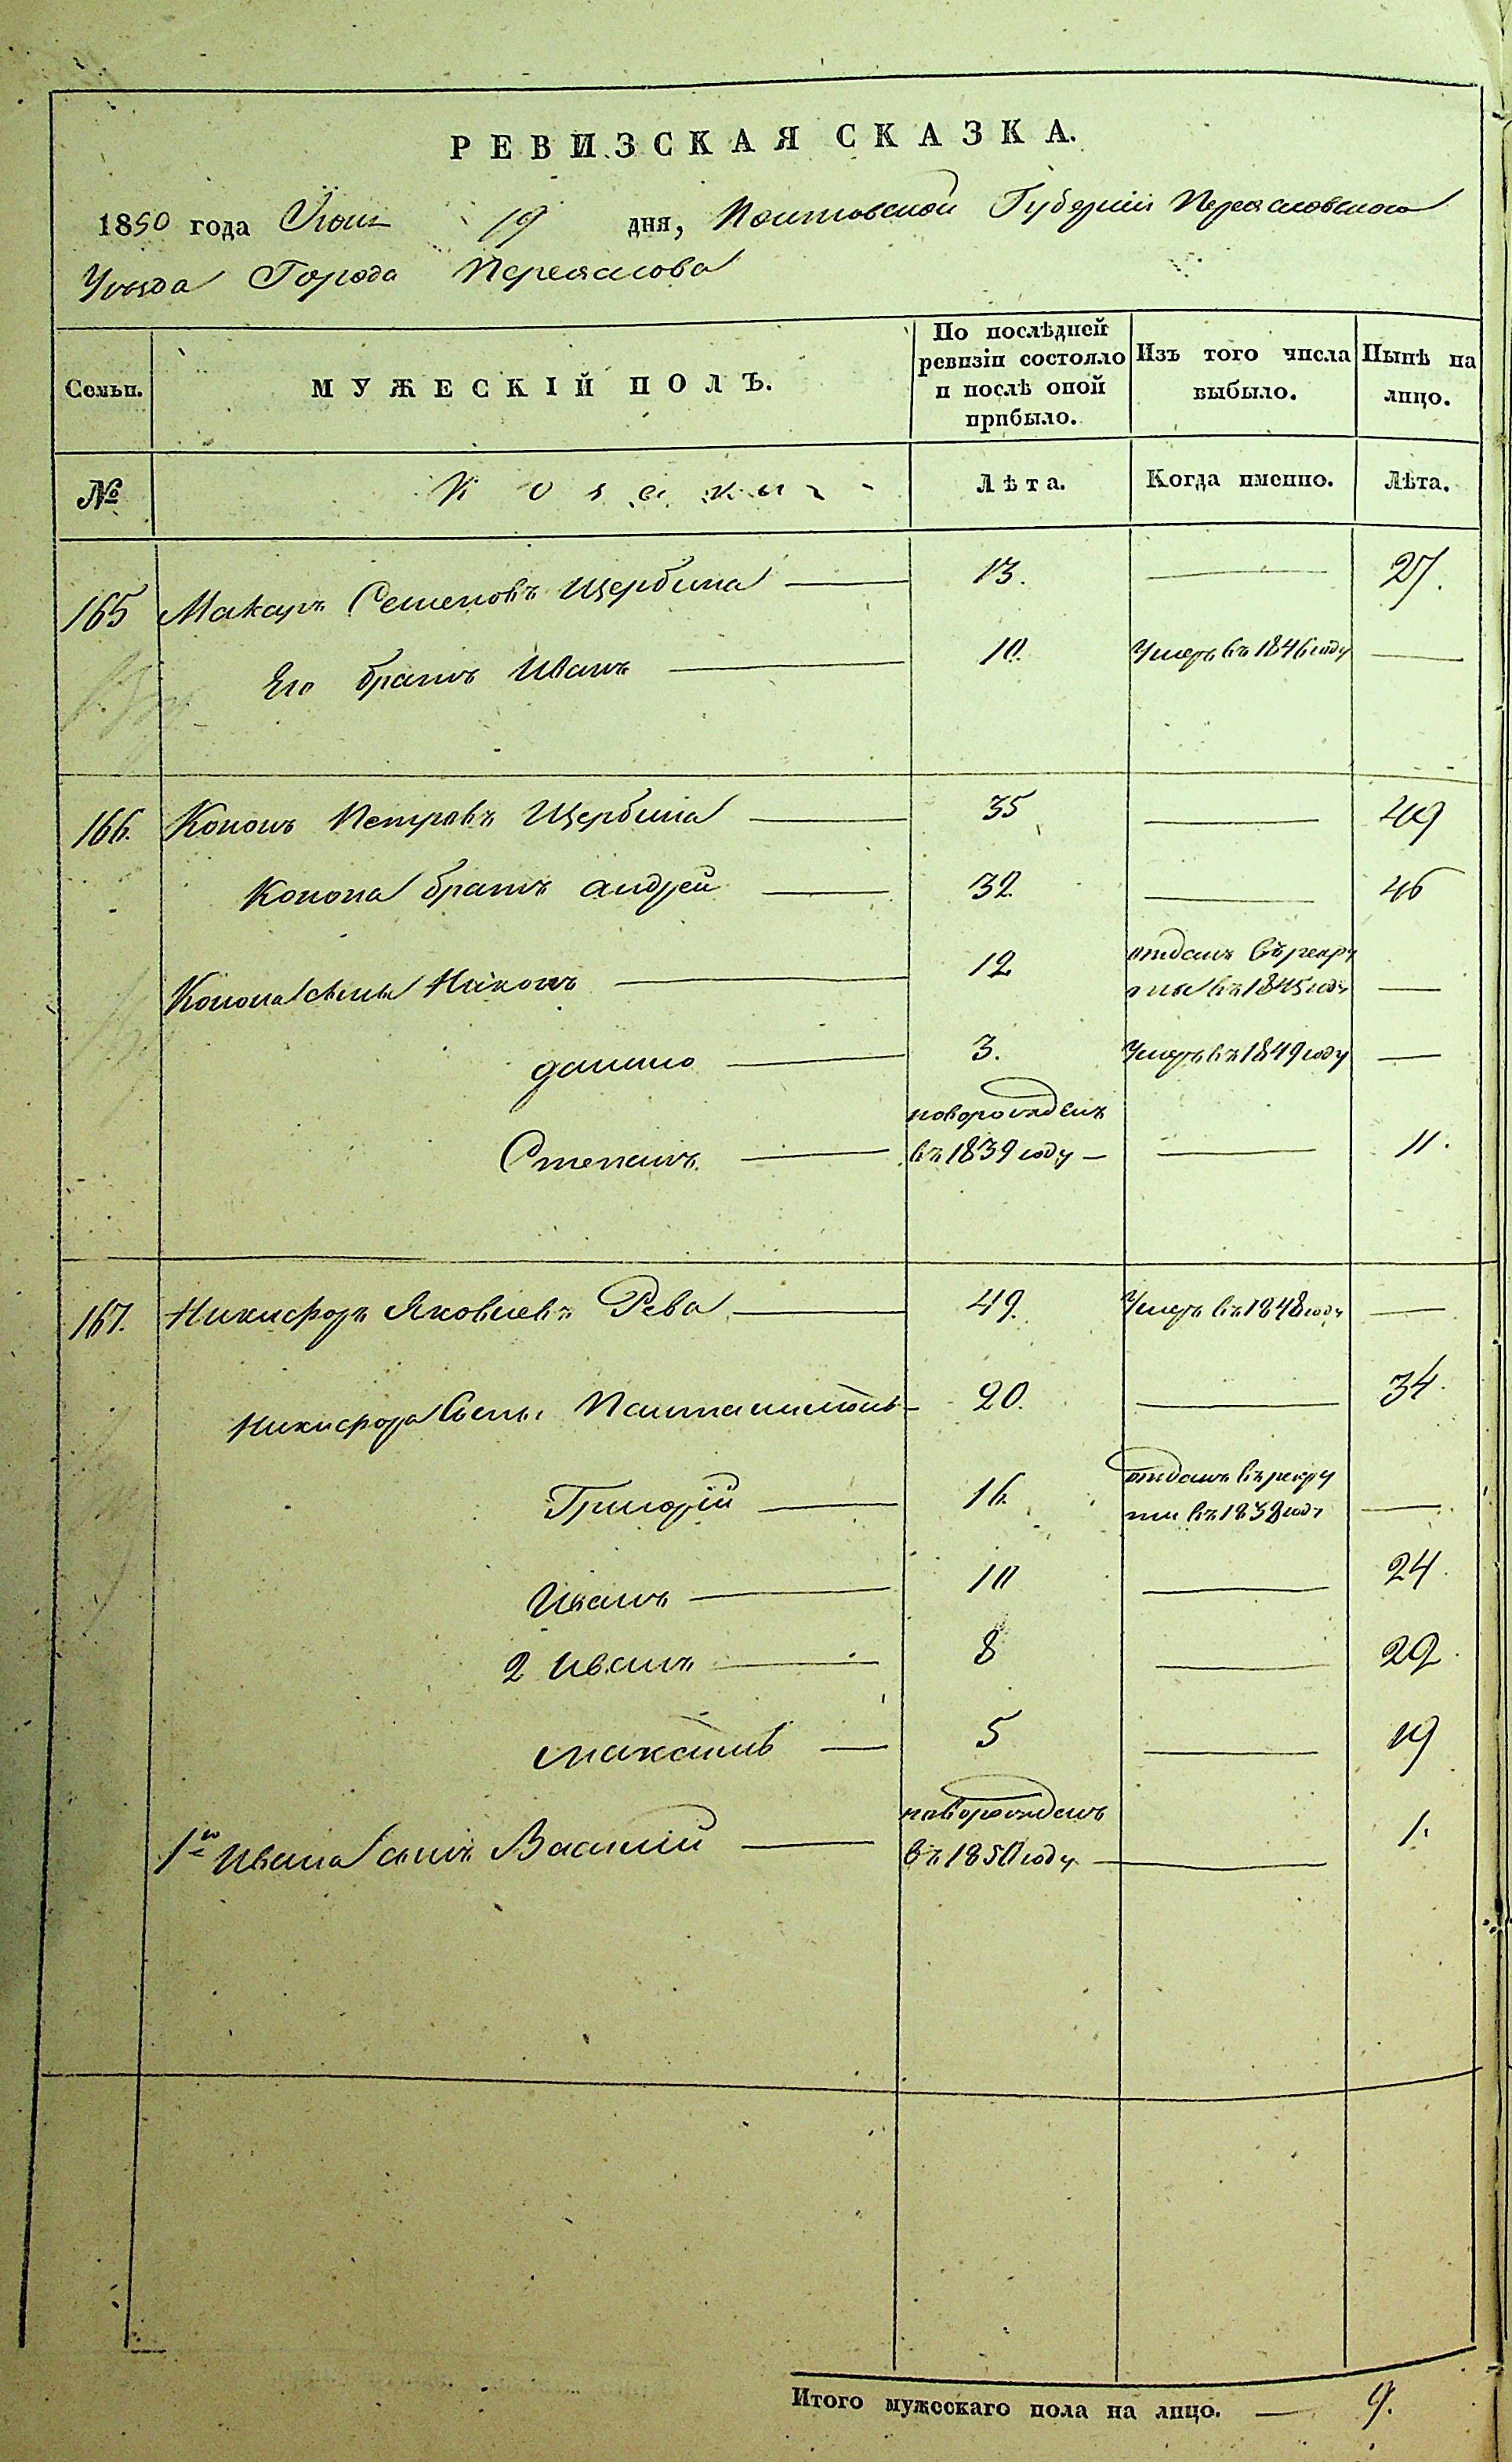 РЕВИЗСКАЯ СКАЗКА.
1850 года Июня 19 дня, Полтавской Губерніи Переяславскаго
Уѣзда Города Переяслова
Семьи. МУЖЕСКІЙ ПОЛЪ. По послѣдней ревизіи состояло и послѣ оной прибыло. Изъ того числа выбыло. Нынѣ на лицо.
№ Козаки Лѣта. Когда именно. Лѣта.
165 Макаръ Семеновъ Щербина — 13. — 27.
Его братъ Иванъ — 10. Умеръ въ 1846 году —
166. Кононъ Петровъ Щербина — 35 — 49
Конона братъ Андрей — 32 — 46
Конона сыны Никонъ — 12 отданъ въ рекруты въ 1845 году —
Данило — 3. Умеръ въ 1849 году —
Степанъ — новорожденъ въ 1839 году — — 11.
167. Никифоръ Яковлевъ Рева — 49. Умеръ въ 1848 году —
Никифора Сыны Пантелимонъ — 20. — 34.
Григорій — 16 отданъ въ рекруты въ 1839 году —
Иванъ — 10 — 24.
2 Иванъ — 8 — 22.
Максимъ — 5 — 19
1го Ивана сынъ Василій — новорожденъ въ 1850 году — 1.
Итого мужескаго пола на лицо. — 9.